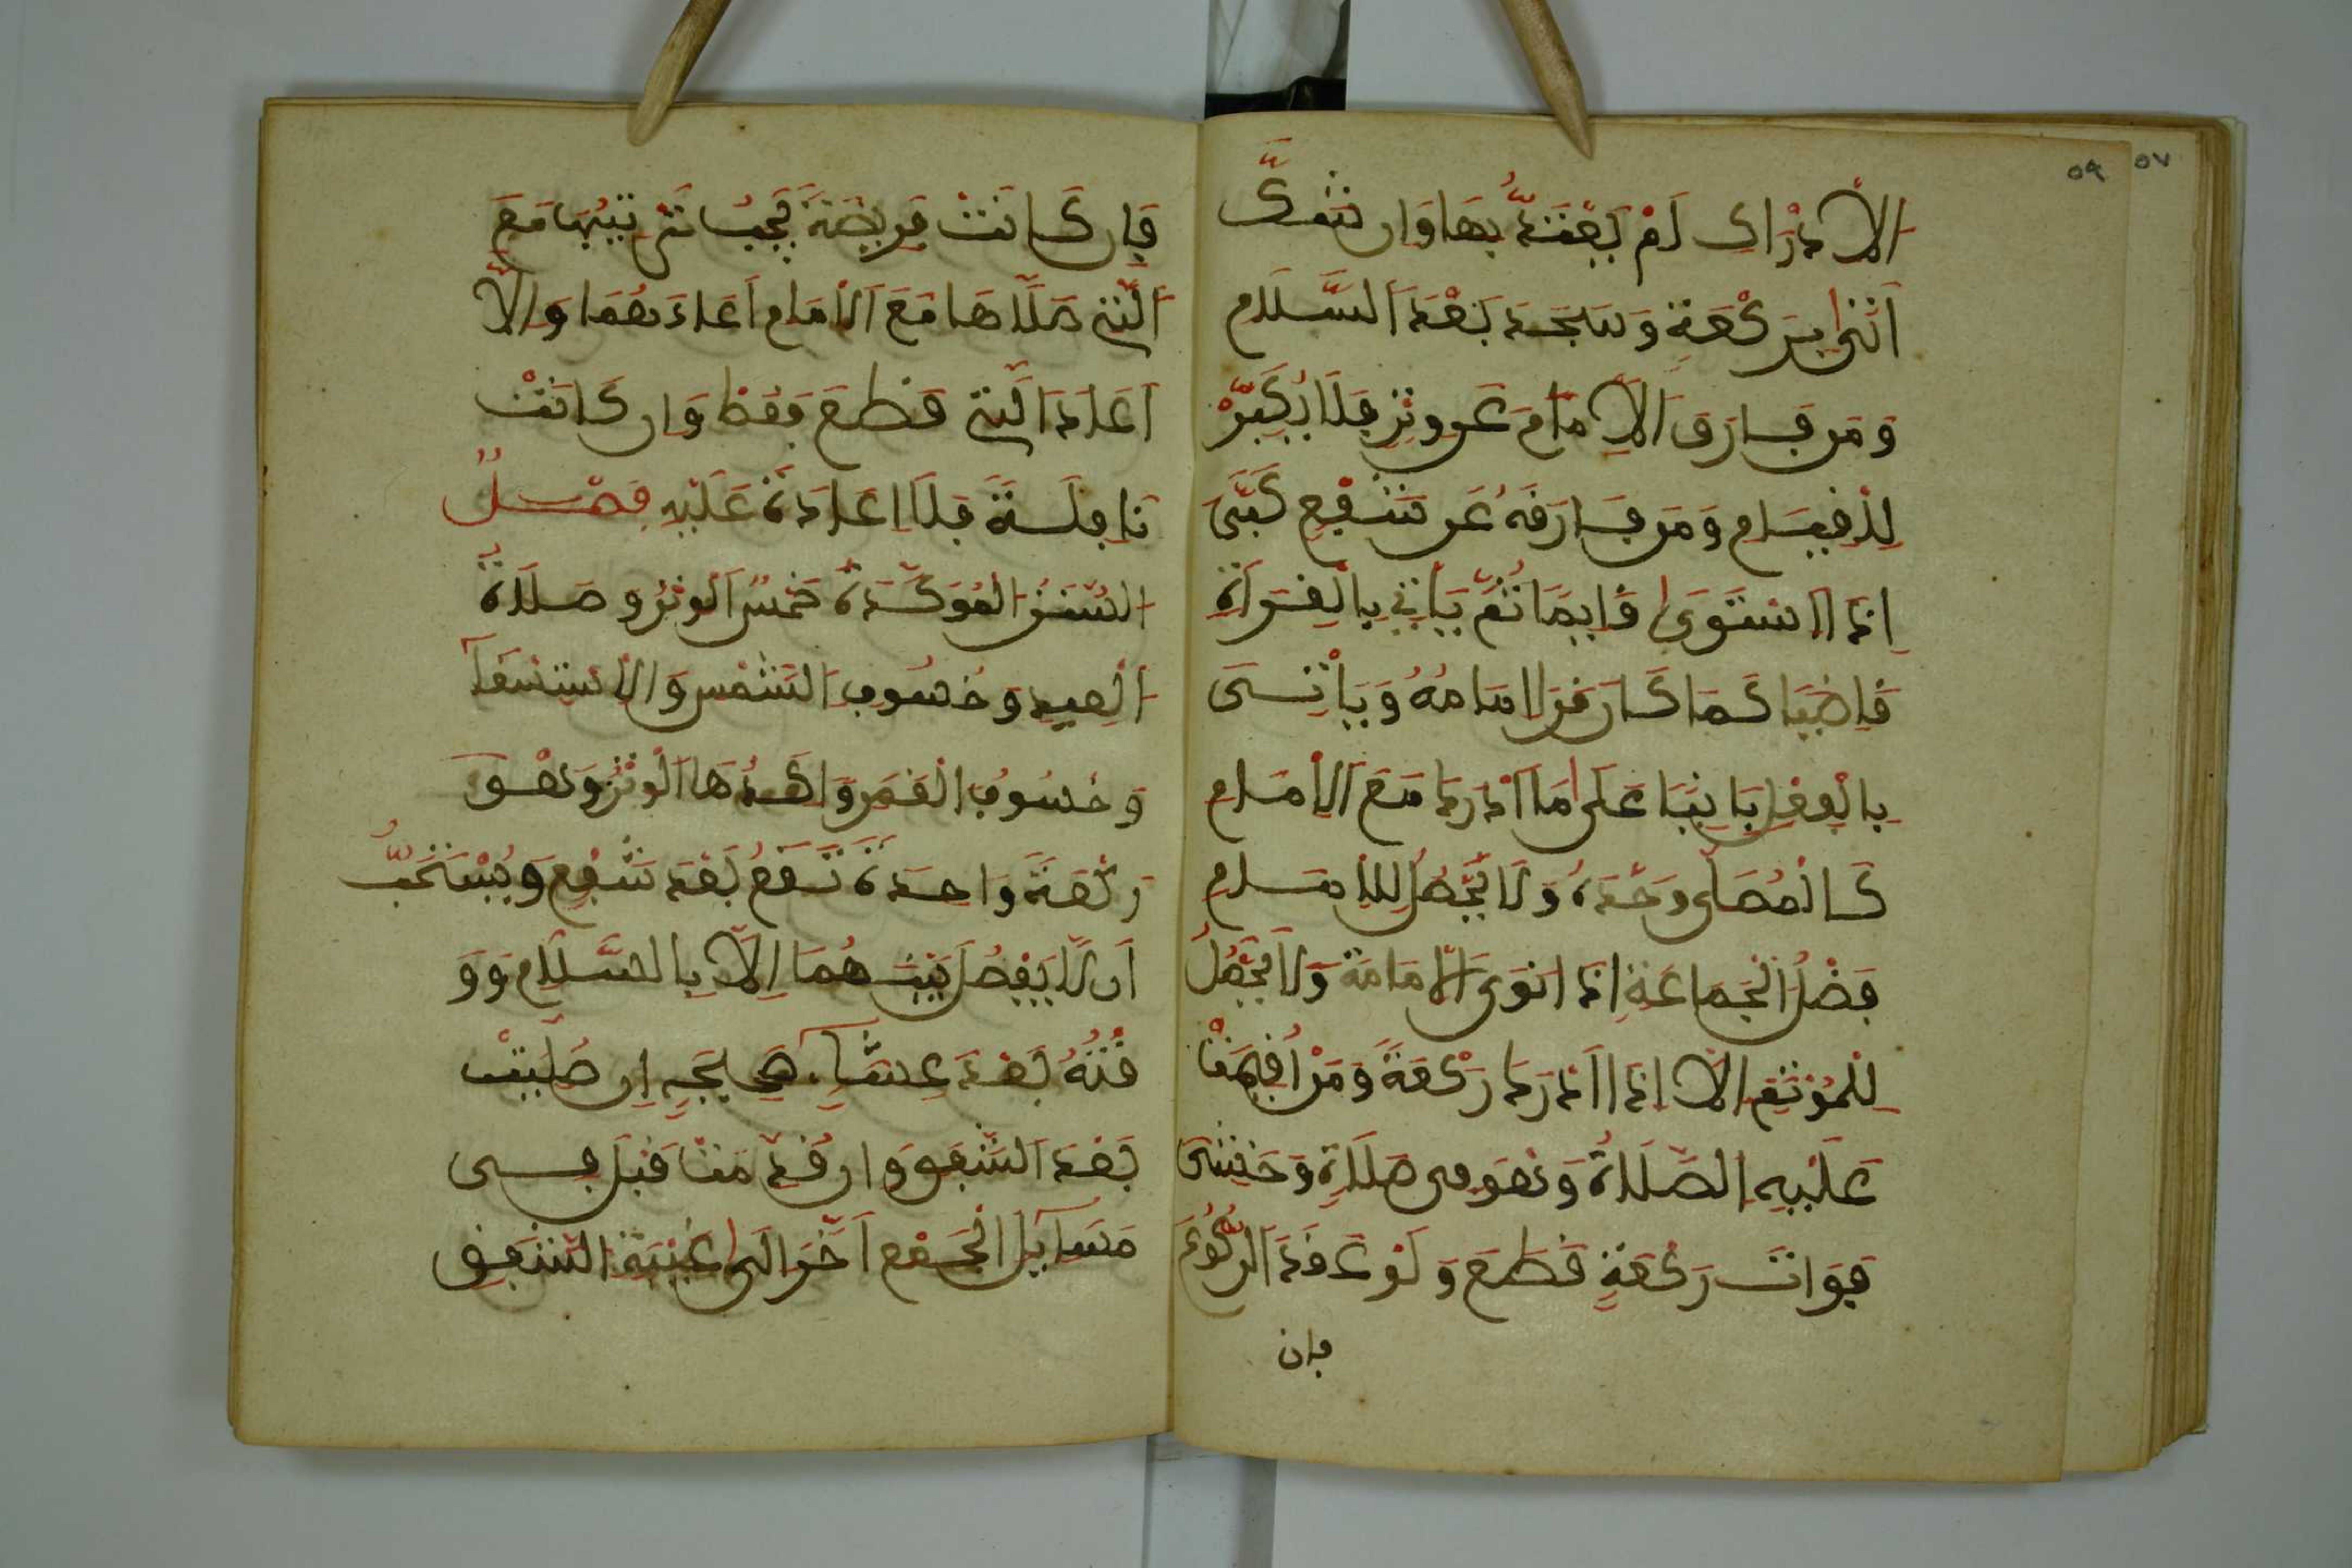 ٥٧
٥٩
الادراك لم يعتد بها وان شك
اتى بركعة وسجد بعد السلام
ومن فارق الامام عن وتر فلا يكبر
للقيام ومن فارقه عن شفع كبر
اذا استوى قايما ثم ياتي بالقراة
قاضيا كما كان قرا امامه وياتى
بالفعل بانيا على ما ادرك مع الامام
كالمصلى وحده ولا يحصل للامام
فضل الجماعة اذا نوى الامامة ولا يحصل
للمؤتم الا اذا ادرك ركعة ومن اقيمت
عليه الصلاة وهو فى صلاة وخشى
فوات ركعة قطع ولو عقد الركوع
فان
فان كانت فريضة يجب ترتيبها مع
التى صلاها مع الامام اعادهما والا
اعاد التى قطع فقط وان كانت
نافلة فلا اعادة عليه فصل
السنن المؤكدة خمس الوتر وصلاة
العيد وخسوف الشمس والاستسقا
وخسوف القمر واكدها الوتر وهو
ركعة واحدة تقع بعد شفع ويستحب
ان لا يفصل بينهما الا بالسلام وو
قته بعد عشاء صحيحة ان صليت
بعد الشفق وان قدمت قبل فى
مسايل الجمع اخر الى غيبة الشفق